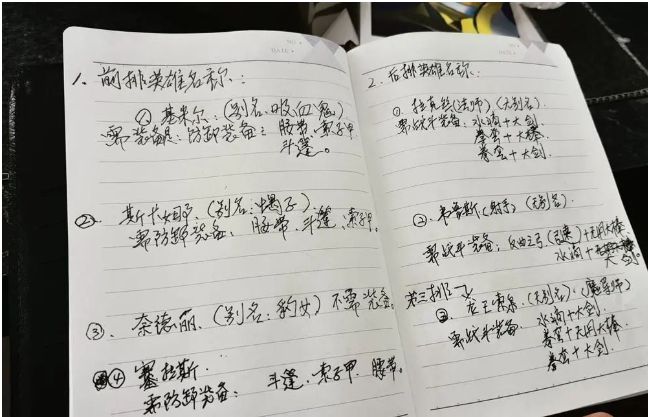 1. 前排英雄名称:
① 基米尔:(别名:吸血鬼)
需装备:防卸装备:腰带、索子甲
斗篷。
②. 斯卡娜.(别名:蝎子)
需防卸装备、腰带、斗篷、索子甲。
③. 奈德丽.(别名:豹女)不需装备。
④ 塞拉斯.
需防卸装备: 斗篷、索子甲、腰带。
2. 后排英雄名称:
① 拉克丝(法师)(无别名).
需战斗装备:水滴+大剑
拳套+大棒
拳套+大剑.
②. 韦鲁斯(射手)(无别名).
需战斗装备:反曲之弓+无用大棒
水滴+大剑。
第三排
③. 龙王索尔.(无别名).(魔导师)
需战斗装备、水滴+大剑.
拳套+无用大棒.
拳套+大剑.